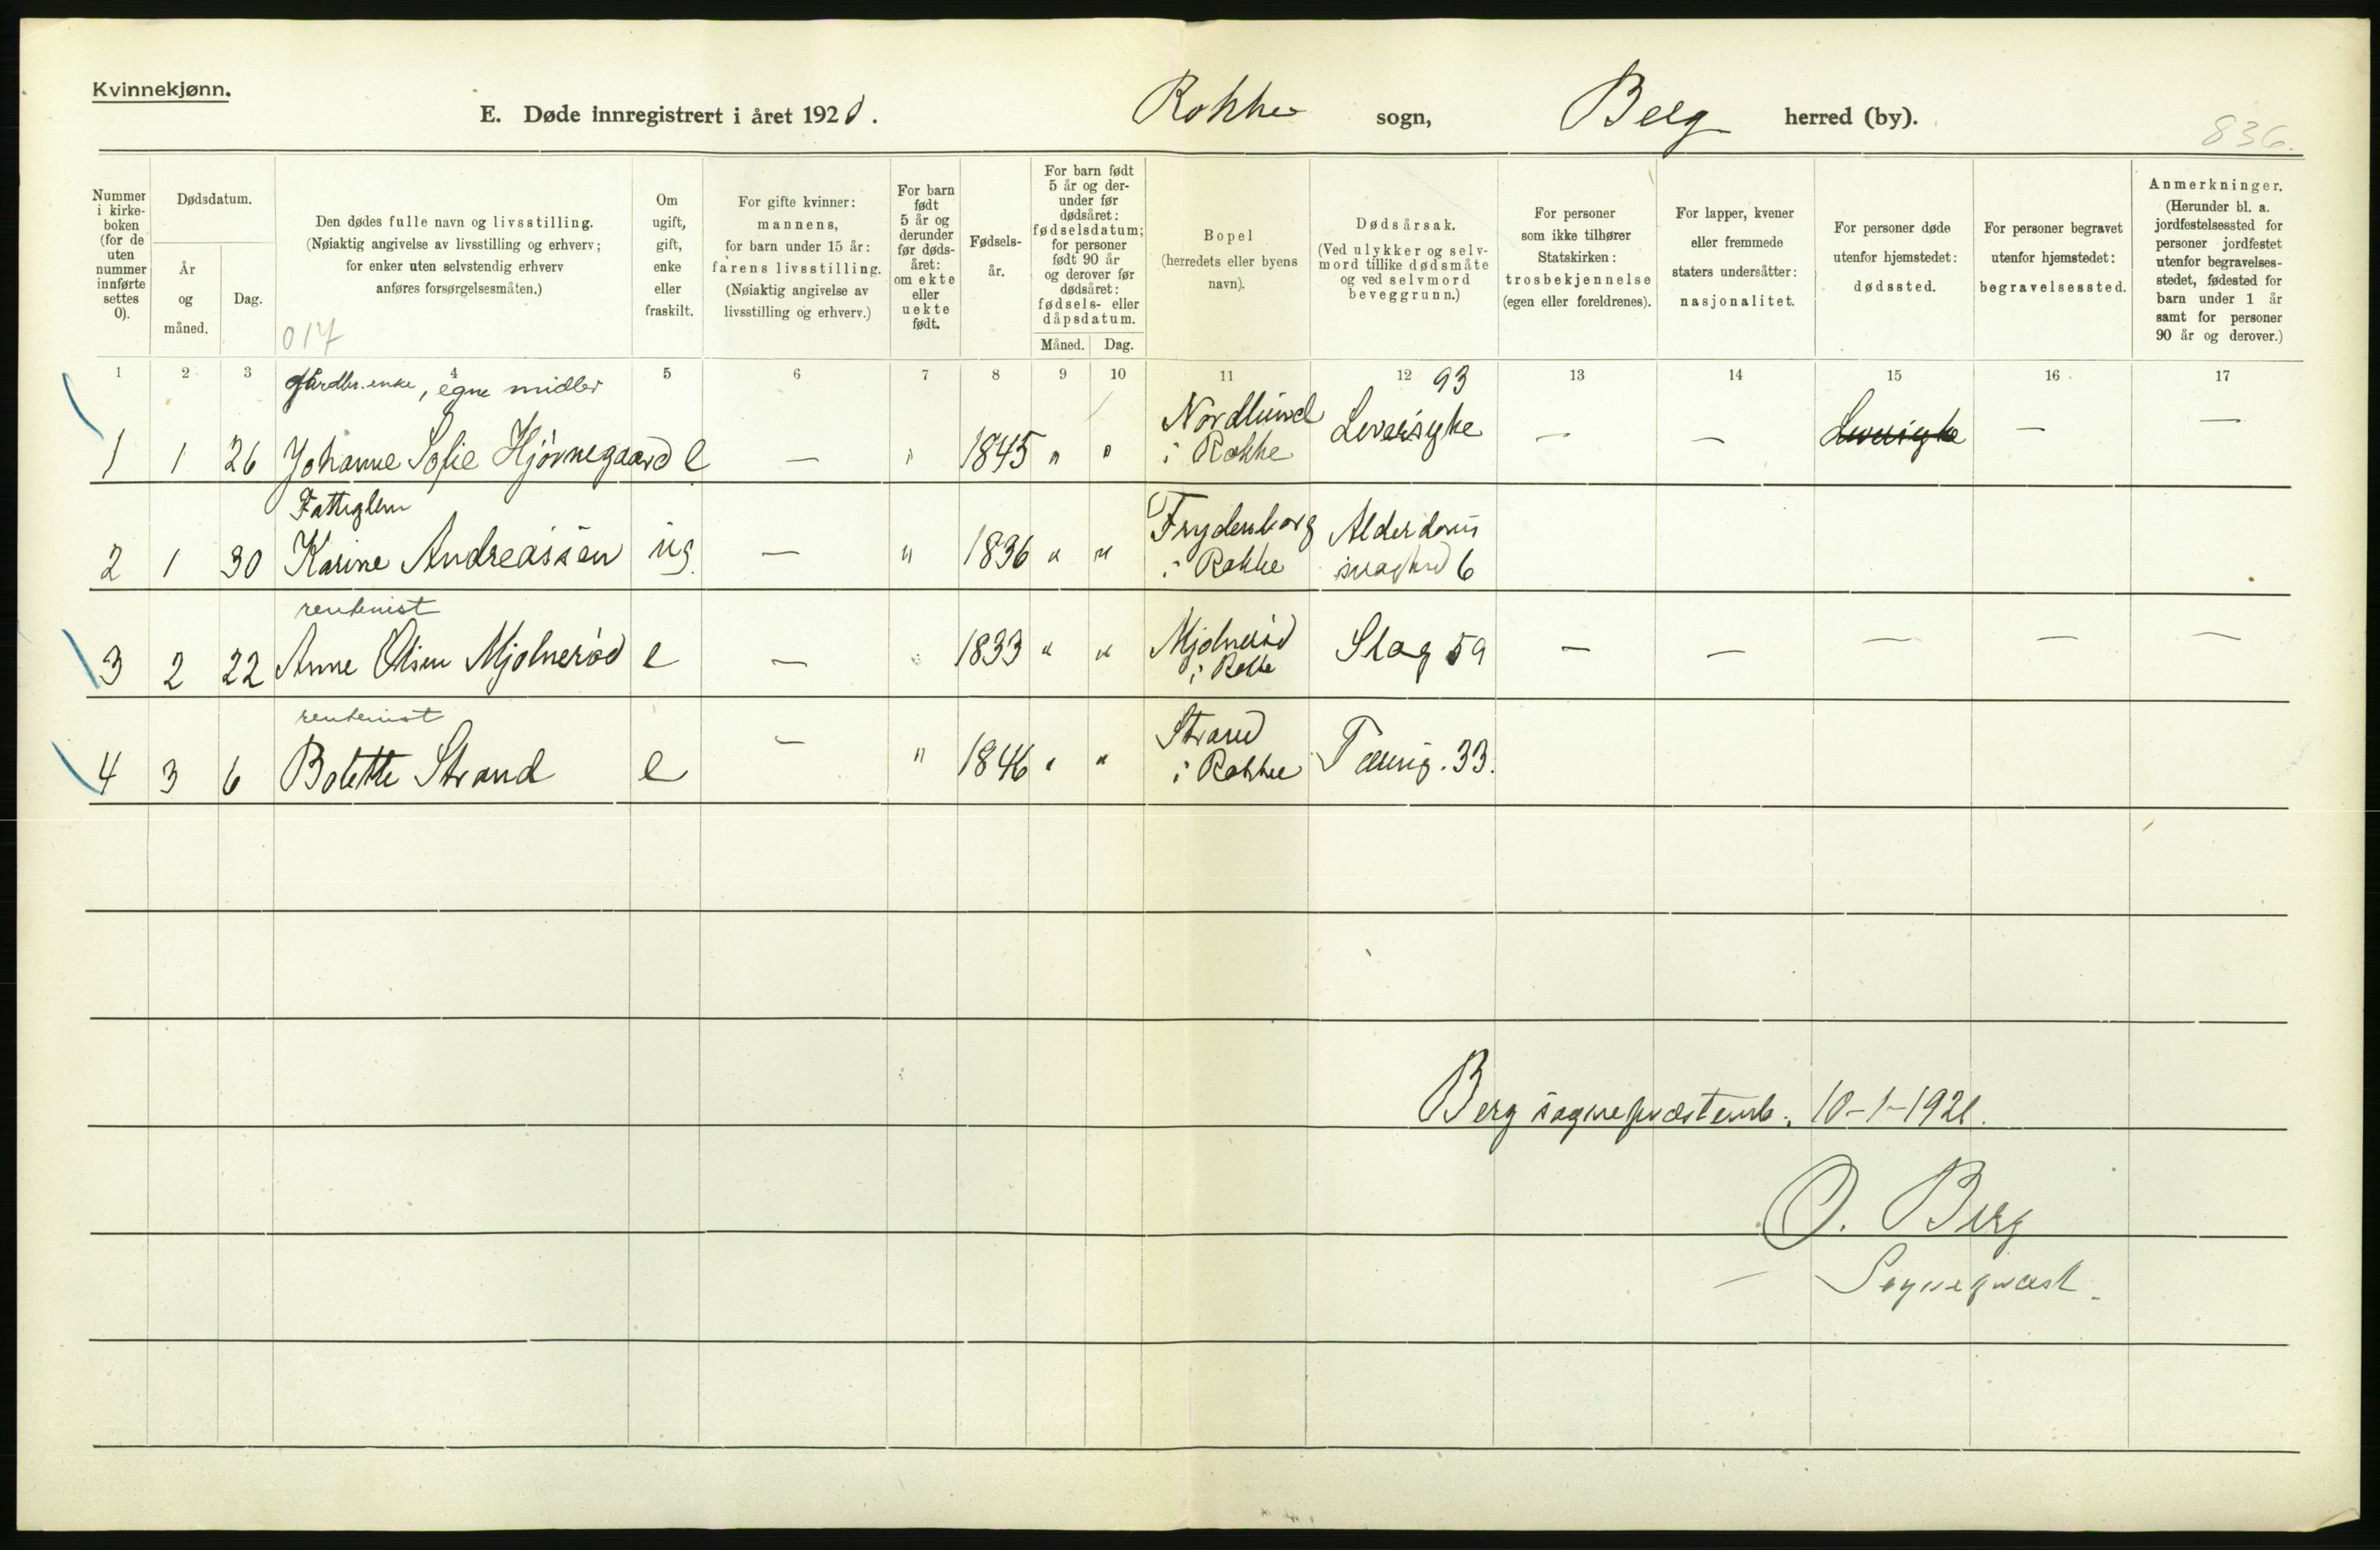 Kvinnekjønn.
E. Døde innregistrert i året 1920. Rokke sogn, Berg herred (by).
836.
Nummer i kirke-boken (for de uten nummer innførte settes 0).
Dødsdatum.
År og måned.
Dag.
Den dødes fulle navn og livsstilling.
(Nøiaktig angivelse av livsstilling og erhverv;
for enker uten selvstendig erhverv
anføres forsørgelsesmåten.)
017
Om ugift, gift, enke eller fraskilt.
For gifte kvinner:
mannens,
for barn under 15 år:
farens livsstilling.
(Nøiaktig angivelse av
livsstilling og erhverv.)
For barn født 5 år og derunder før døds-året: om ekte eller uekte født.
Fødsels-år.
For barn født 5 år og der-under før dødsåret: fødselsdatum; for personer født 90 år og derover før dødsåret: fødsels- eller dåpsdatum.
Måned. Dag.
Bopel
(herredets eller byens
navn).
Dødsårsak.
(Ved ulykker og selv-
mord tillike dødsmåte
og ved selvmord
beveggrunn.)
For personer
som ikke tilhører
Statskirken:
trosbekjennelse
(egen eller foreldrenes).
For lapper, kvener
eller fremmede
staters undersåtter:
nasjonalitet.
For personer døde
utenfor hjemstedet:
dødssted.
For personer begravet
utenfor hjemstedet:
begravelsessted.
Anmerkninger.
(Herunder bl. a.
jordfestelsessted for
personer jordfestet
utenfor begravelses-
stedet, fødested for
barn under 1 år
samt for personer
90 år og derover.)
1 2 3 4 5 6 7 8 9 10 11 12 13 14 15 16 17
Gårdbr.enke, egne midler 93
1 1 26 Johanne Sofie Hjørnegaard e — " 1845 " " Nordlund i Rokke Leversyke — — Leversyke — —
Fattiglem
2 1 30 Karine Andreassen ug. — " 1836 " " Frydenborg i Rokke Alderdoms svaghed 6
rentenist
3 2 22 Anne Olsen Mjølnerød e — " 1833 " " Mjølnerød i Rokke Slag 59 — — — — —
rentenist
4 3 6 Bolette Strand e — " 1846 " " Strand i Rokke Tæring. 33.
Berg sogneprestemb. 10-1-1921.
O. Berg
Sogneprest.